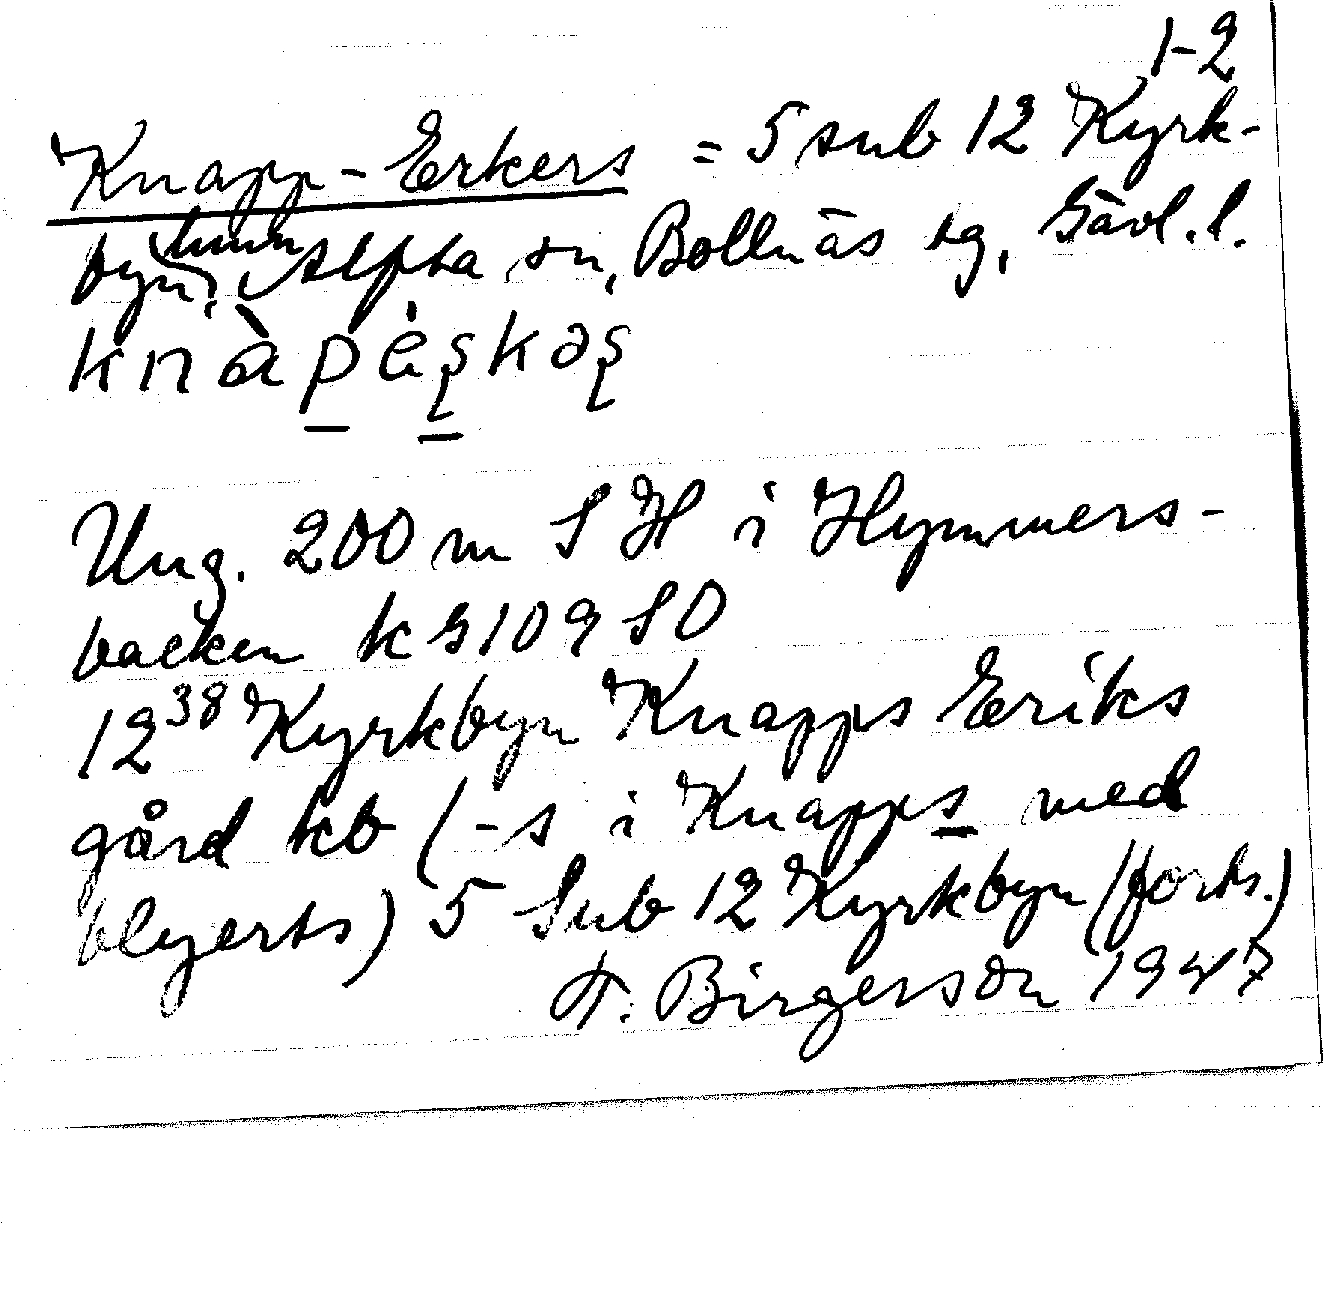 1-2
Knapp-Erkers = 5 sub 12 Kyrk-
byn, hmn, Alfta sn, Bollnäs tg, Gävl. l.
knàpèşkəş
Ung. 200 m S H i Hymmers-
backen k G 109 SO
12³⁸ Kyrkbyn Knapps Eriks
gård kb (-s i Knapps med
blyerts) 5 Sub 12 Kyrkbyn (forts.)
F. Birgerson 1947